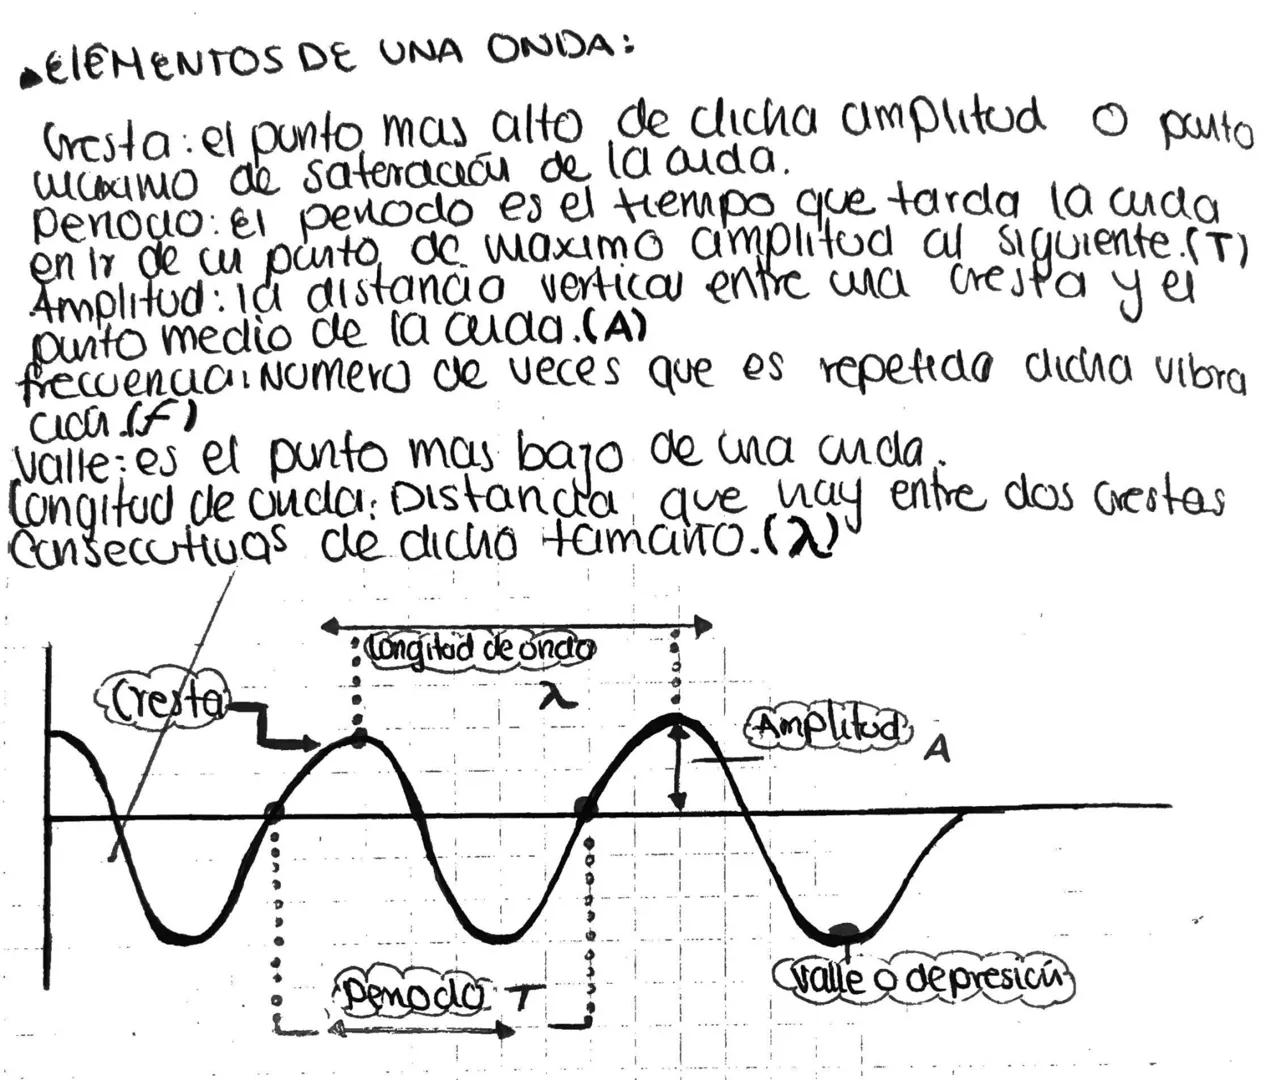 ElEMENTOS DE UNA ONDA:
Cresta: el punto mas alto de dicha amplitud o punto
maximo de saturación de la onda.
periodo: El periodo es el tiempo que tarda la onda
en ir de un punto de maximo amplitud al siguiente.(T)
Amplitud: la distancia vertical entre una cresta y el
punto medio de la onda.(A)
frecuencia: Numero de veces que es repetida dicha vibra
ción.(f)
Valle: es el punto mas bajo de una onda.
Longitud de onda: Distancia que hay entre dos crestas
consecutivas de dicho tamaño.(λ)
Longitud de onda
λ
Cresta
Amplitud A
Valle o depresión
periodo T